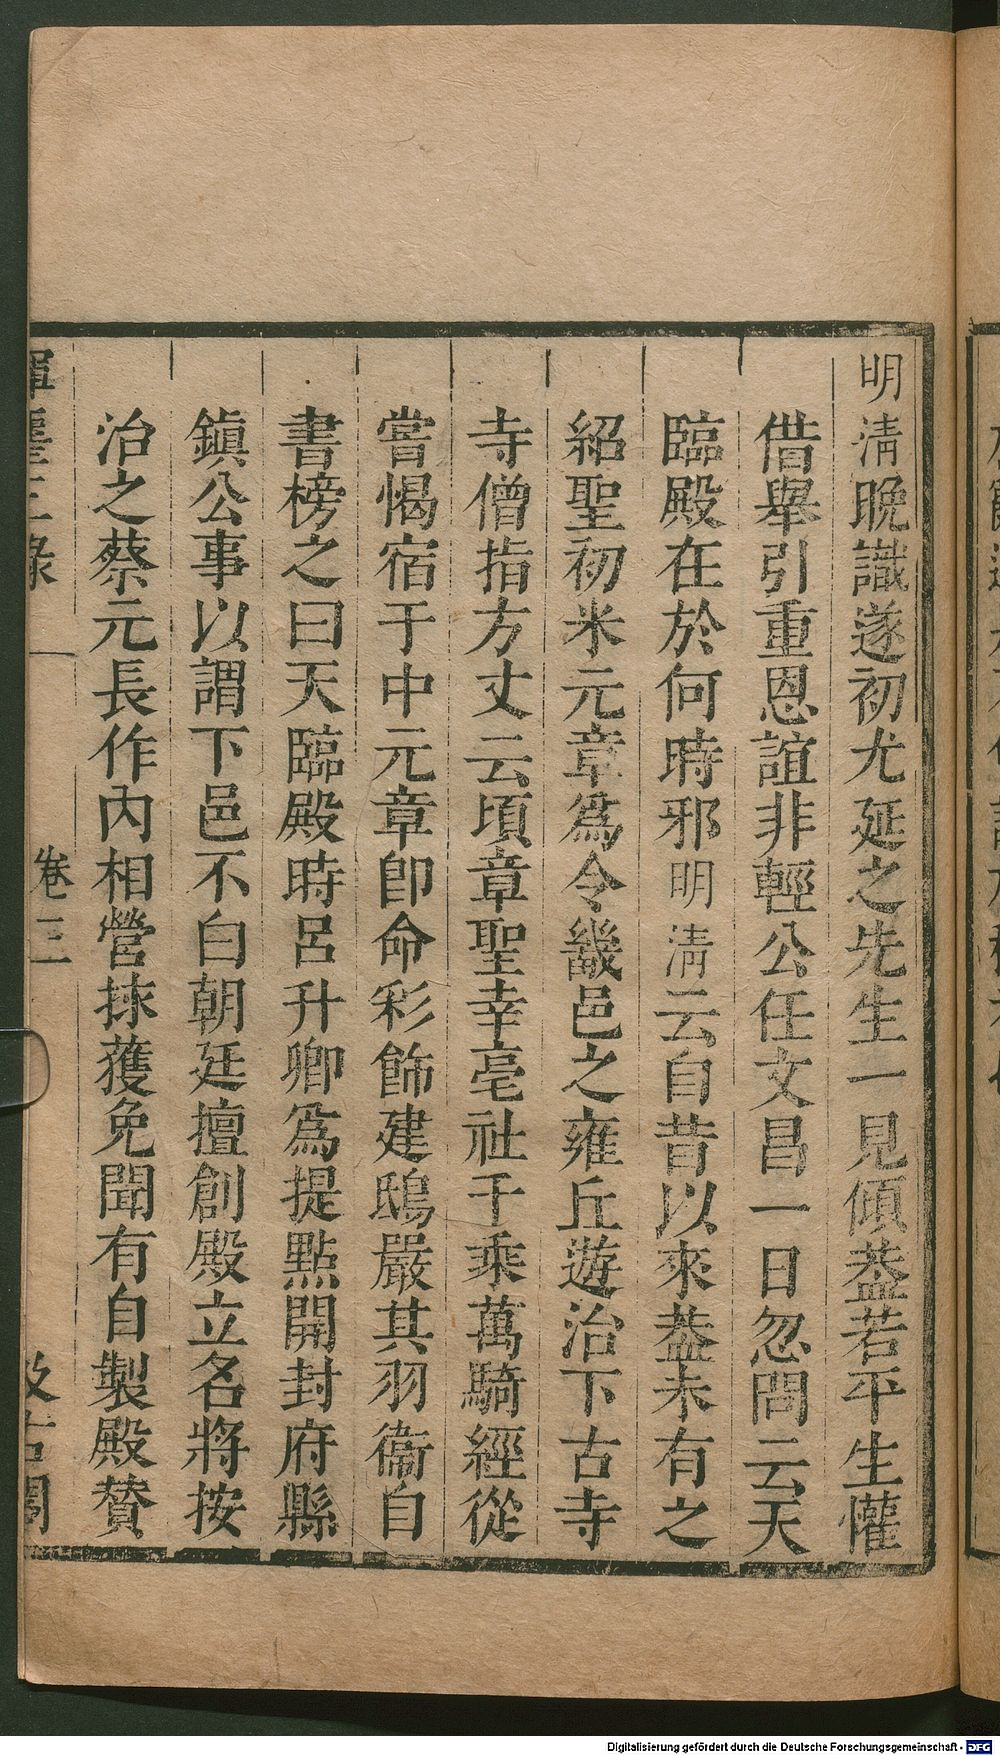 明清晚識遂初尤延之先生一見傾葢若平生懽
借舉引重恩誼非輕公任文昌一日忽問云天
臨殿在於何時邪明清云自昔以來葢未有之
紹聖初米元章爲令畿邑之雍丘遊治下古寺
寺僧指方丈云頃章聖幸亳社千乘萬騎經從
嘗愒宿于中元章卽命彩飾建鴟嚴其羽衞自
書榜之曰天臨殿時呂升卿爲提點開封府縣
鎭公事以謂下邑不白朝廷擅創殿立名將按
治之蔡元長作內相營捄獲免聞有自製殿贊
揮麈三錄 卷三 汲古閣
Digitalisierung gefördert durch die Deutsche Forschungsgemeinschaft - DFG